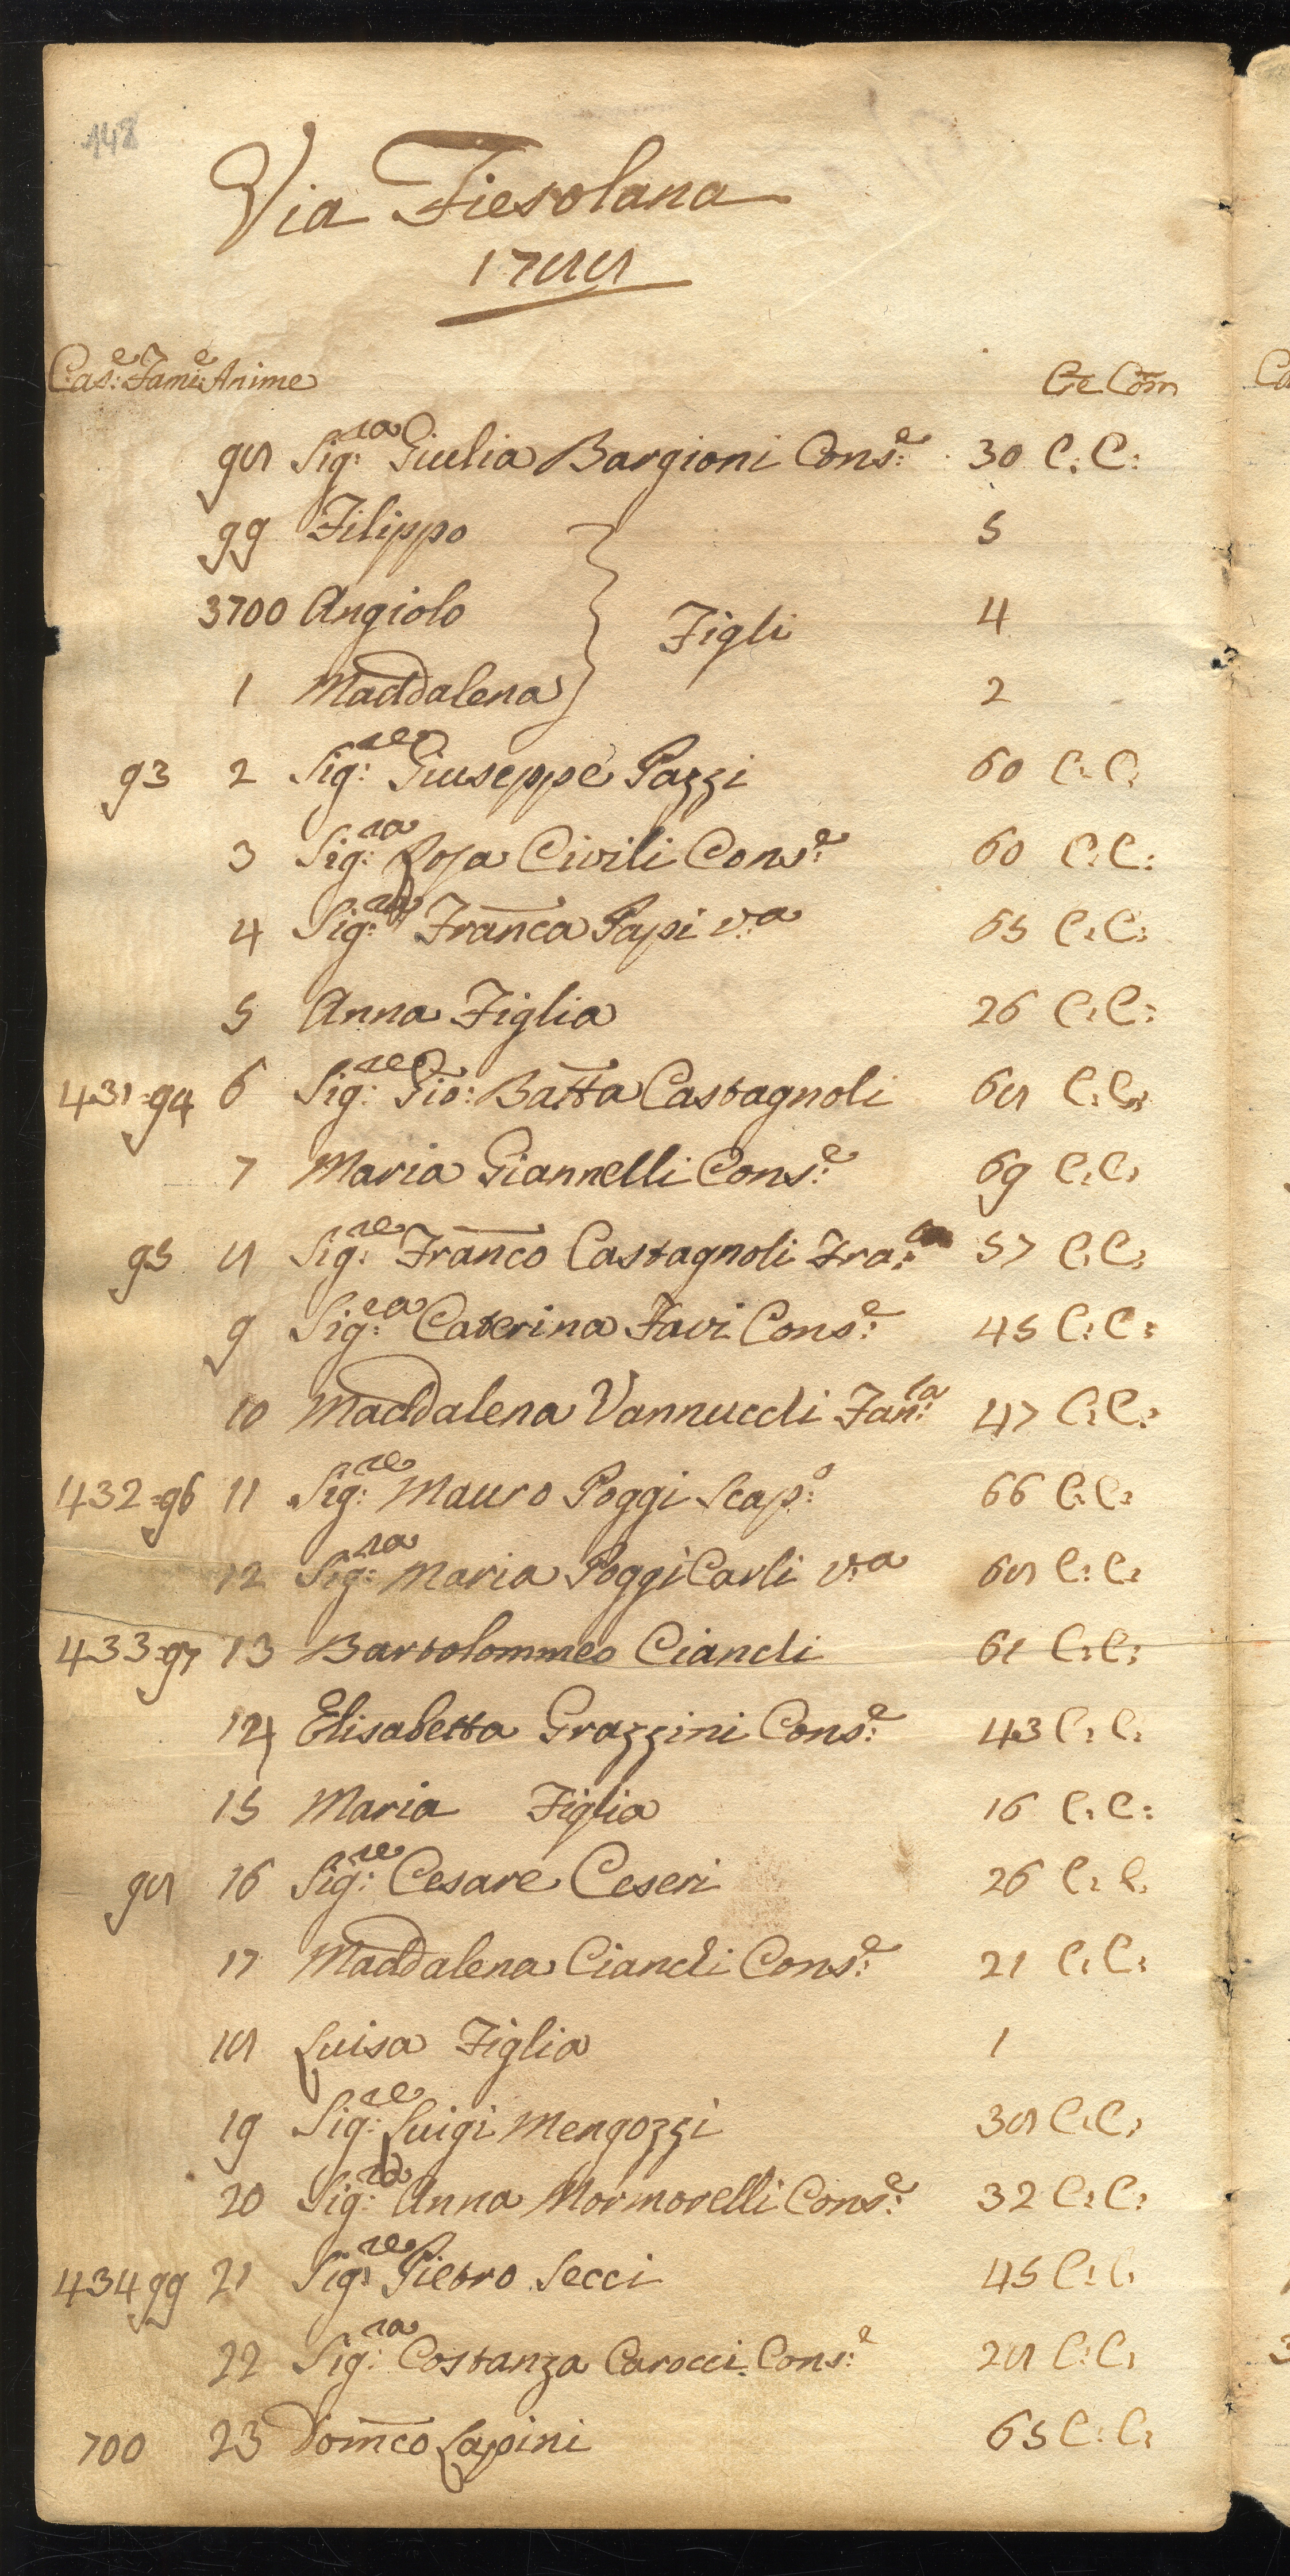 148
Via Fiesolana
1788
Cas:e Fami:e Anime Ce Com
98 Sig:ra Giulia Bargioni Cons:e 30 C: C:
99 Filippo 5
3700 Angiolo Figli 4
1 Maddalena 2
93 2 Sig:re Giuseppe Pazzi 60 C: C:
3 Sig:ra Rosa Civili Cons:e 60 C: C:
4 Sig:ra Franca Papi v:a 65 C: C:
5 Anna Figlia 26 C: C:
431=94 6 Sig:re Gio: Batta Castagnoli 68 C: C:
7 Maria Giannelli Cons:e 69 C: C:
95 8 Sig:re Franco Castagnoli Fra: 57 C: C:
9 Sig:ra Caterina Favi Cons:e 45 C: C:
10 Maddalena Vannucchi Fan:la 47 C: C:
432=96 11 Sig:re Mauro Poggi Scap:o 66 C: C:
12 Sig:ra Maria Poggi Carli v:a 68 C: C:
433=97 13 Bartolommeo Cianchi 61 C: C:
14 Elisabetta Grazzini Cons:e 43 C: C:
15 Maria Figlia 16 C: C:
98 16 Sig:re Cesare Ceseri 26 C: C:
17 Maddalena Cianchi Cons:e 21 C: C:
18 Luisa Figlia 1
19 Sig:re Luigi Mengozzi 38 C: C:
20 Sig:ra Anna Mormorelli Cons:e 32 C: C:
434 99 21 Sig:re Pietro Secci 45 C: C:
22 Sig:ra Costanza Carocci Cons:e 28 C: C:
700 23 Domco Lapini 65 C: C: